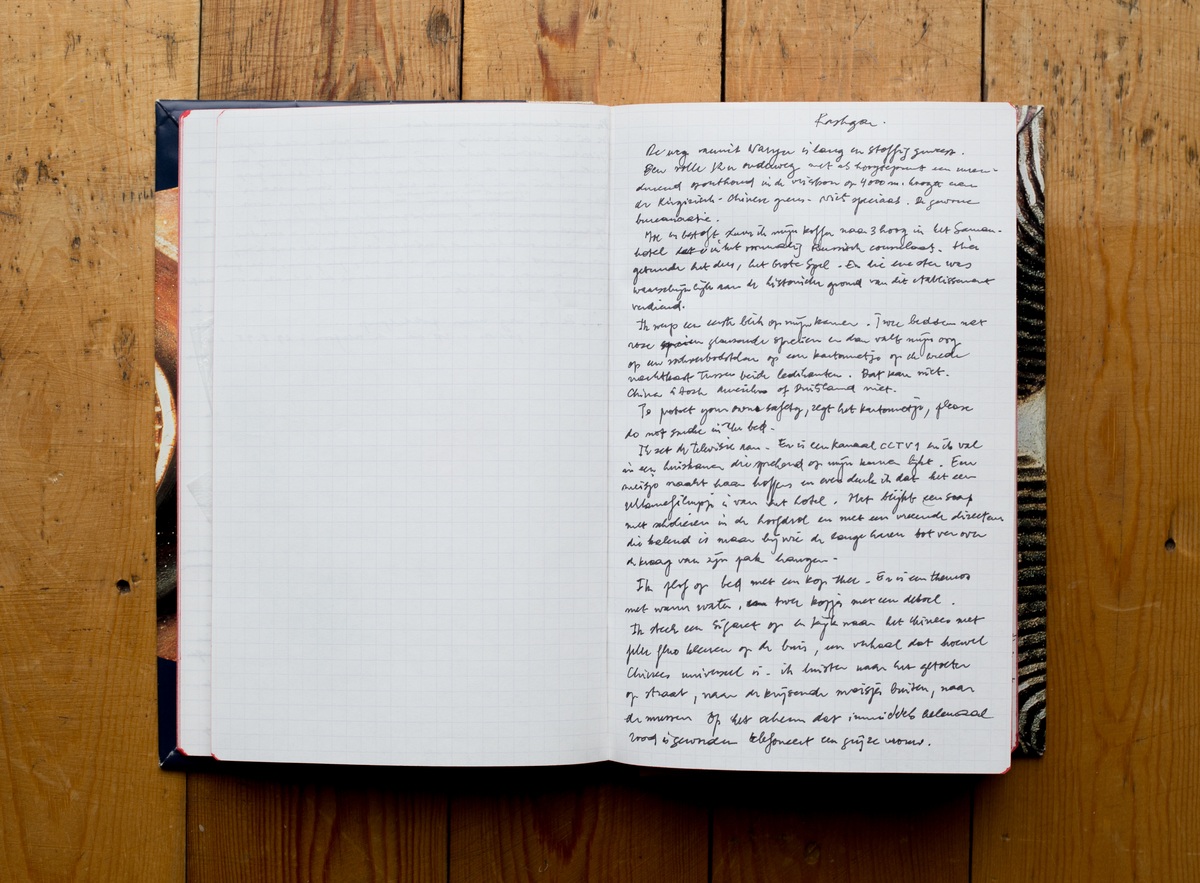 Kashgar.
De weg vanuit Naryn is lang en stoffig geweest.
Een volle km onderweg met als hoogtepunt een uren-
durend oponthoud in de vrieskou op 4000 m. hoogte aan
de Kirgizisch-Chinese grens. Niet speciaal. De gewone
bureaucratie.
Moe en bestoft zeul ik mijn koffer naar 3 hoog in het Seman-
hotel dat in het voormalig Russisch consulaat. Hier
gebeurde het dus, het Grote Spel. En die ene ster was
waarschijnlijk aan de historische grond van dit etablissement
verdiend.
Ik werp een eerste blik op mijn kamer. Twee bedden met
roze glanzende spreien en dan valt mijn oog
op een rookverbodsbam op een kartonnetje op de brede
nachtkast tussen beide ledikanten. Dat kan niet.
China is toch Amerika of Duitsland niet.
To protect your own safety, zegt het kartonnetje, please
do not smoke in the bed.
Ik zet de televisie aan. Er is een kanaal CCTV1 en ik val
in een huiskamer die sprekend op mijn kamer lijkt. Een
meisje maakt haar koffers en even denk ik dat het een
reclamefilmpje is van het hotel. Het blijkt een soap
met scholieren in de hoofdrol en met een vreemde directeur
die kalend is maar bij wie de lange haren tot ver over
de kraag van zijn pak hangen.
Ik plof op bed met een kop thee. Er is een thermos
met warm water, twee kopjes met een deksel.
Ik steek een sigaret op en kijk naar het Chinees met
felle fluo kleuren op de buis, een verhaal dat hoewel
Chinees universeel is. Ik luister naar het getoeter
op straat, naar de krijsende meisjes buiten, naar
de mussen. Op het scherm dat inmiddels helemaal
rood is geworden telefoneert een grijze vrouw.